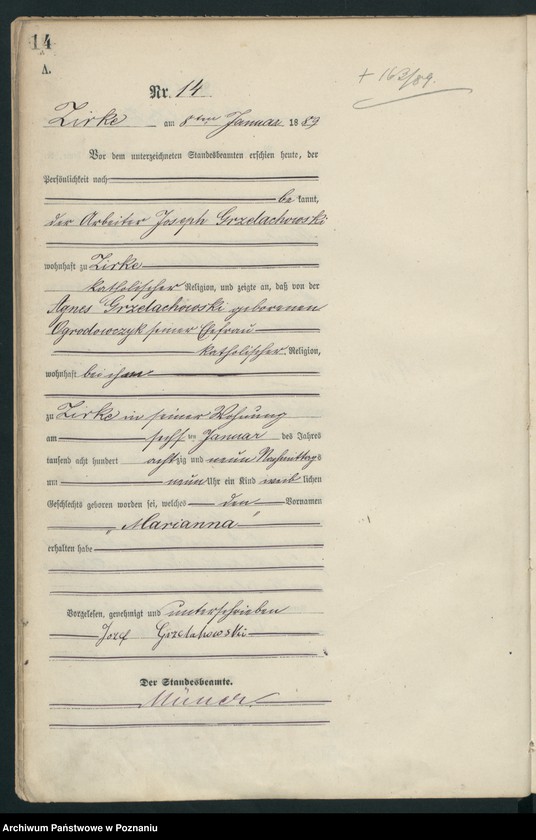 14
A.
+ 163/89.
Nr. 14
Zirke am 8ten Januar 1889
Vor dem unterzeichneten Standesbeamten erschien heute, der
Persönlichkeit nach
be kannt,
der Arbeiter Joseph Grzelachowski
wohnhaft zu Zirke
katholischer Religion, und zeigte an, daß von der
Agnes Grzelachowski geborenen
Ogrodowczyk seiner Ehefrau
katholischer Religion,
wohnhaft bei ihm
zu Zirke in seiner Wohnung
am sechs ten Januar des Jahres
tausend acht hundert achtzig und neun Nachmittags
um neun Uhr ein Kind weib lichen
Geschlechts geboren worden sei, welches den Vornamen
„Marianna“
erhalten habe
Vorgelesen, genehmigt und unterschrieben
Jozef Grzelahowski
Der Standesbeamte.
Archiwum Państwowe w Poznaniu